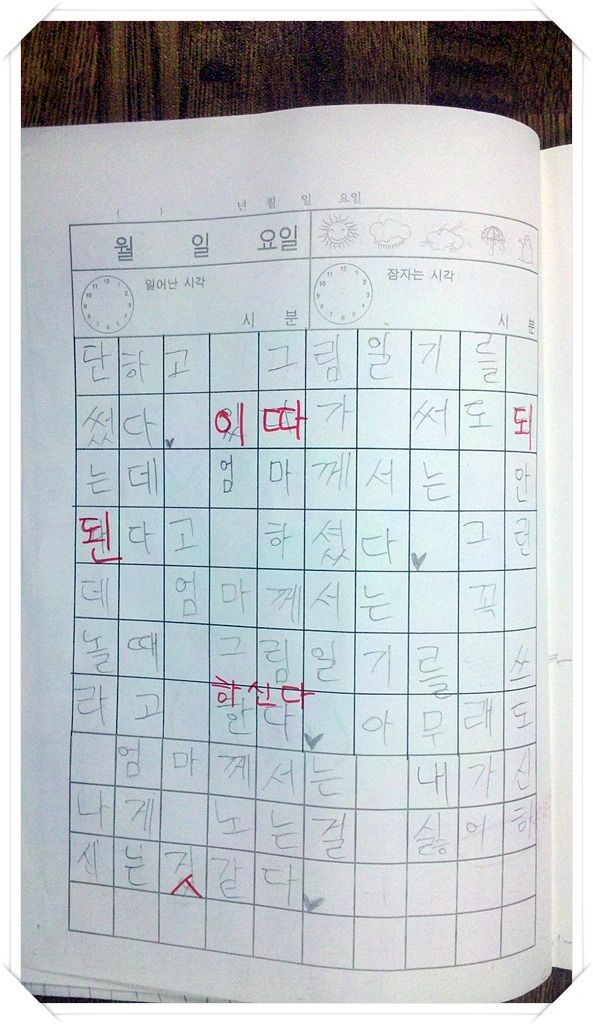 ( ) 년 월 일 요일
월 일 요일
일어난 시각 잠자는 시각
12 1 2 3 4 5 6 7 8 9 10 11 12 1 2 3 4 5 6 7 8 9 10 11
시 분 시 분
단하고 그림일기를
썼다. 이따가 써도 되
는데 엄마께서는 안
된다고 하셨다. 그런
데 엄마께서는 꼭
놀때 그림일기를 쓰
하신다
라고 한다. 아무래도
엄마께서는 내가 신
나게 노는걸 싫어하
시는 것 같다.